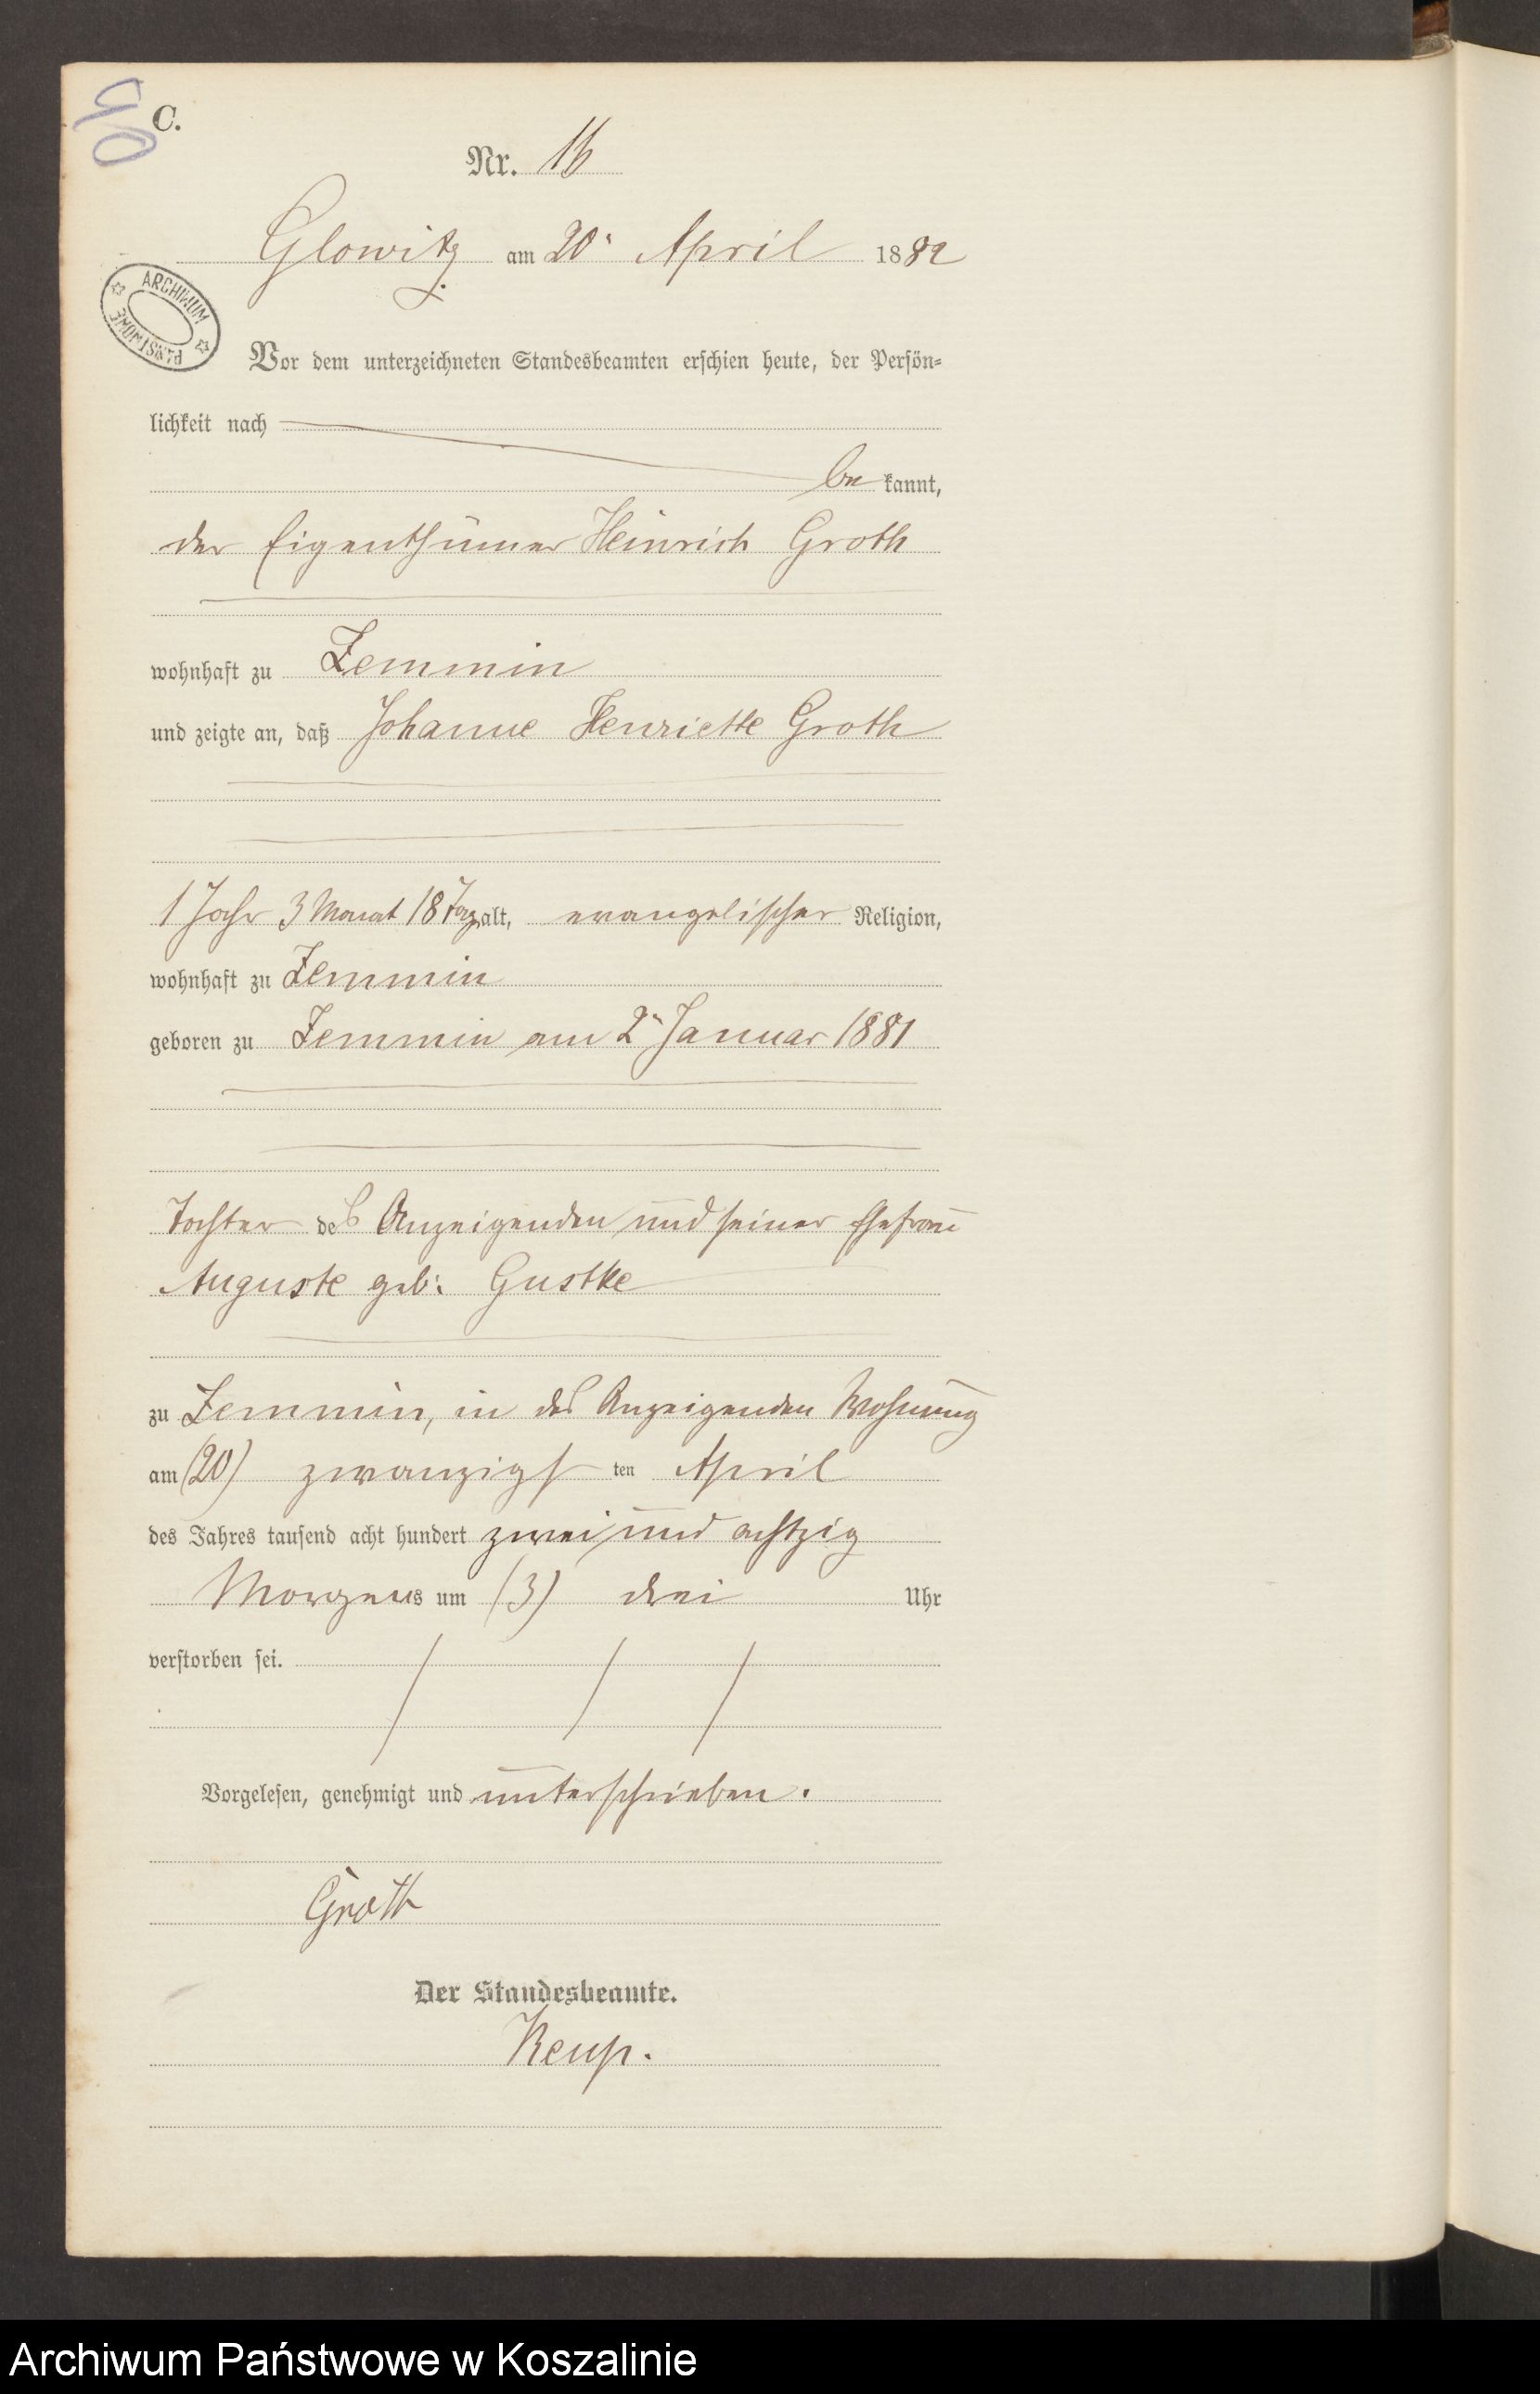 90
C.
Nr. 16
Glowitz am 20. April 1882
ARCHIWUM PAŃSTWOWE
Vor dem unterzeichneten Standesbeamten erschien heute, der Persön-
lichkeit nach
bekannt,
der Eigenthümer Heinrich Groth
wohnhaft zu Zemmin
und zeigte an, daß Johanne Henriette Groth
1 Jahr 3 Monat 18 Tag alt, evangelischer Religion,
wohnhaft zu Zemmin
geboren zu Zemmin am 2. Januar 1881
Tochter des Anzeigenden und seiner Ehefrau
Auguste geb. Gustke
zu Zemmin, in des Anzeigenden Wohnung
am (20) zwanzigsten April
des Jahres tausend acht hundert zwei und achtzig
Morgens um (3) drei Uhr
verstorben sei.
Vorgelesen, genehmigt und unterschrieben.
Groth
Der Standesbeamte.
Keup.
Archiwum Państwowe w Koszalinie